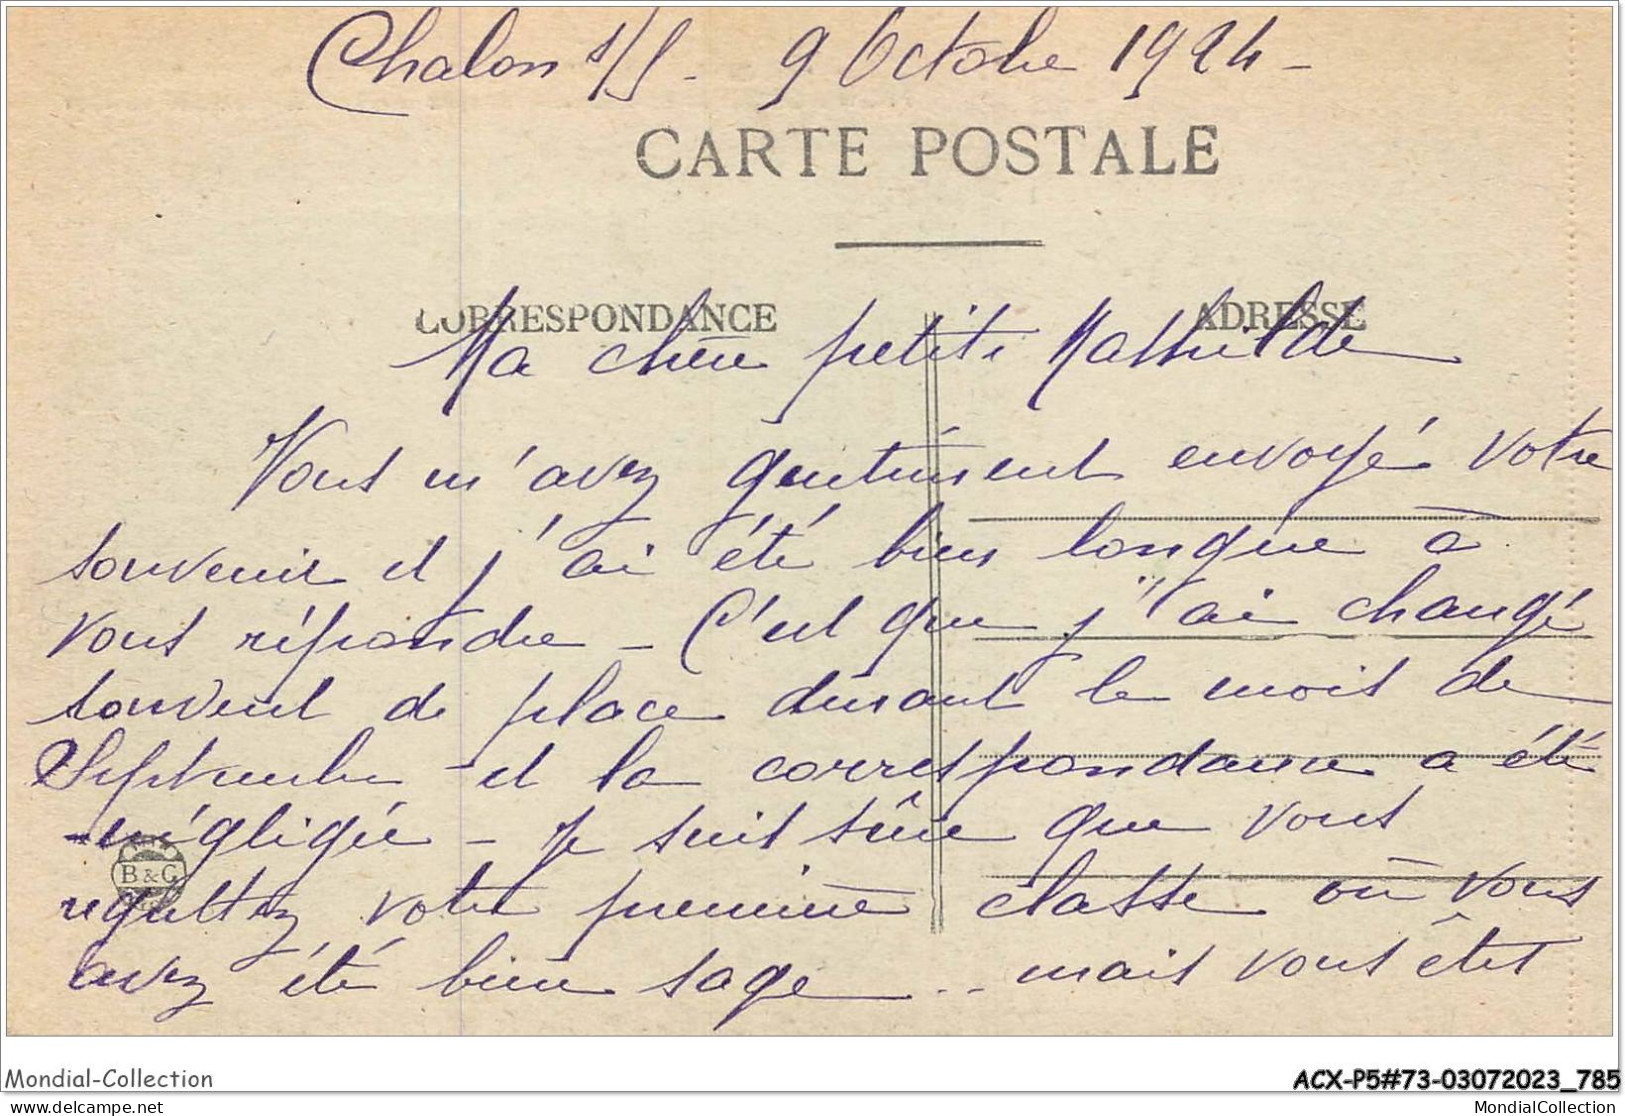 Chalon s/S - 9 Octobre 1924 -
CARTE POSTALE
CORRESPONDANCE ADRESSE
Ma chère petite Mathilde
Vous m'avez gentiment envoyé votre
souvenir et j'ai été bien longue à
vous répondre - C'est que j'ai changé
souvent de place durant le mois de
Septembre et la correspondance a été
négligée - Je suis sûre que vous
B & C
regrettez votre première classe où vous
avez été bien sage .. mais vous êtes
Mondial-Collection
ACX-P5#73-03072023_785
delcampe.net
MondialCollection